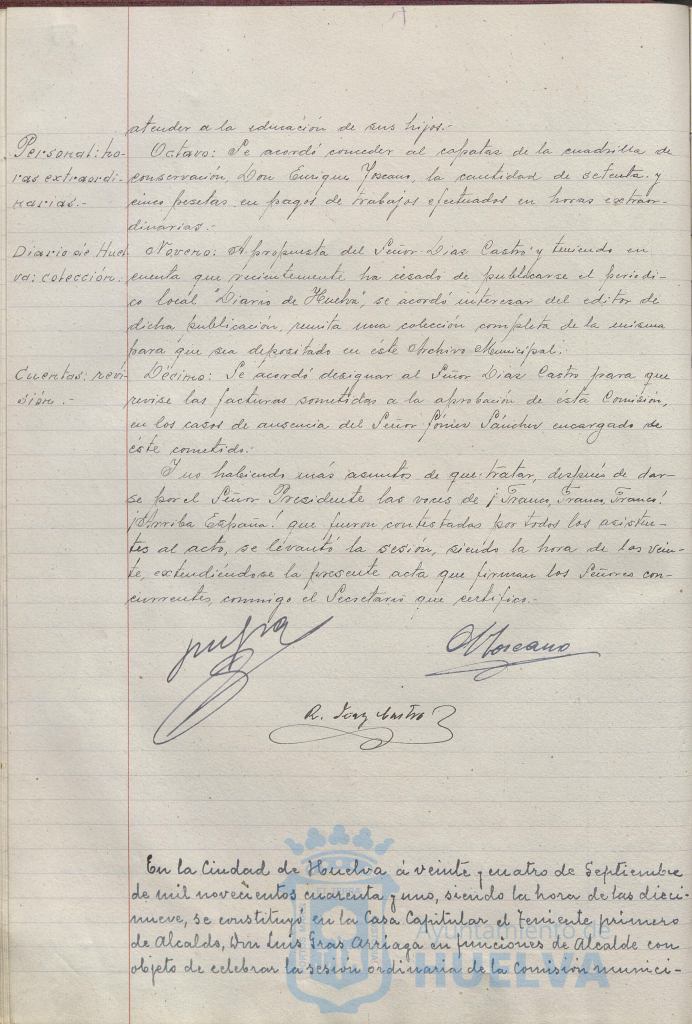 atender a la educación de sus hijos.-
Personal: ho-
ras extraordi-
narias.-
Octavo: Se acordó conceder al capataz de la cuadrilla de
conservación, Don Enrique Toscano, la cantidad de setenta y
cinco pesetas en pagos de trabajos efectuados en horas extraor-
dinarias.-
Diario de Huel-
va: colección.-
Noveno: A propuesta del Señor Diaz Castro y teniendo en
cuenta que recientemente ha cesado de publicarse el periodi-
co local "Diario de Huelva", se acordó interesar del editor de
dicha publicación, remita una colección completa de la misma
para que sea depositado en éste Archivo Municipal.-
Cuentas: revi-
sión.-
Décimo: Se acordó designar al Señor Diaz Castro para que
revise las facturas sometidas a la aprobación de ésta Comisión,
en los casos de ausencia del Señor Gómez Sánchez encargado de
éste cometido.-
Y no habiendo más asuntos de que tratar, después de dar-
se por el Señor Presidente las voces de ¡Franco, Franco, Franco!
¡Arriba España! que fueron contestadas por todos los asisten-
tes al acto, se levantó la sesión, siendo la hora de las vein-
te, extendiéndose la presente acta que firman los Señores con-
currentes, conmigo el Secretario que certifico.-
Toscano
R. Diaz Castro
En la Ciudad de Huelva á veinte y cuatro de Septiembre
de mil novecientos cuarenta y uno, siendo la hora de las dieci-
nueve, se constituyó en la Casa Capitular el Teniente primero
de Alcalde, Don Luis Gras Arriaga en funciones de Alcalde con
objeto de celebrar la sesión ordinaria de la Comisión munici-
Ayuntamiento de
HUELVA